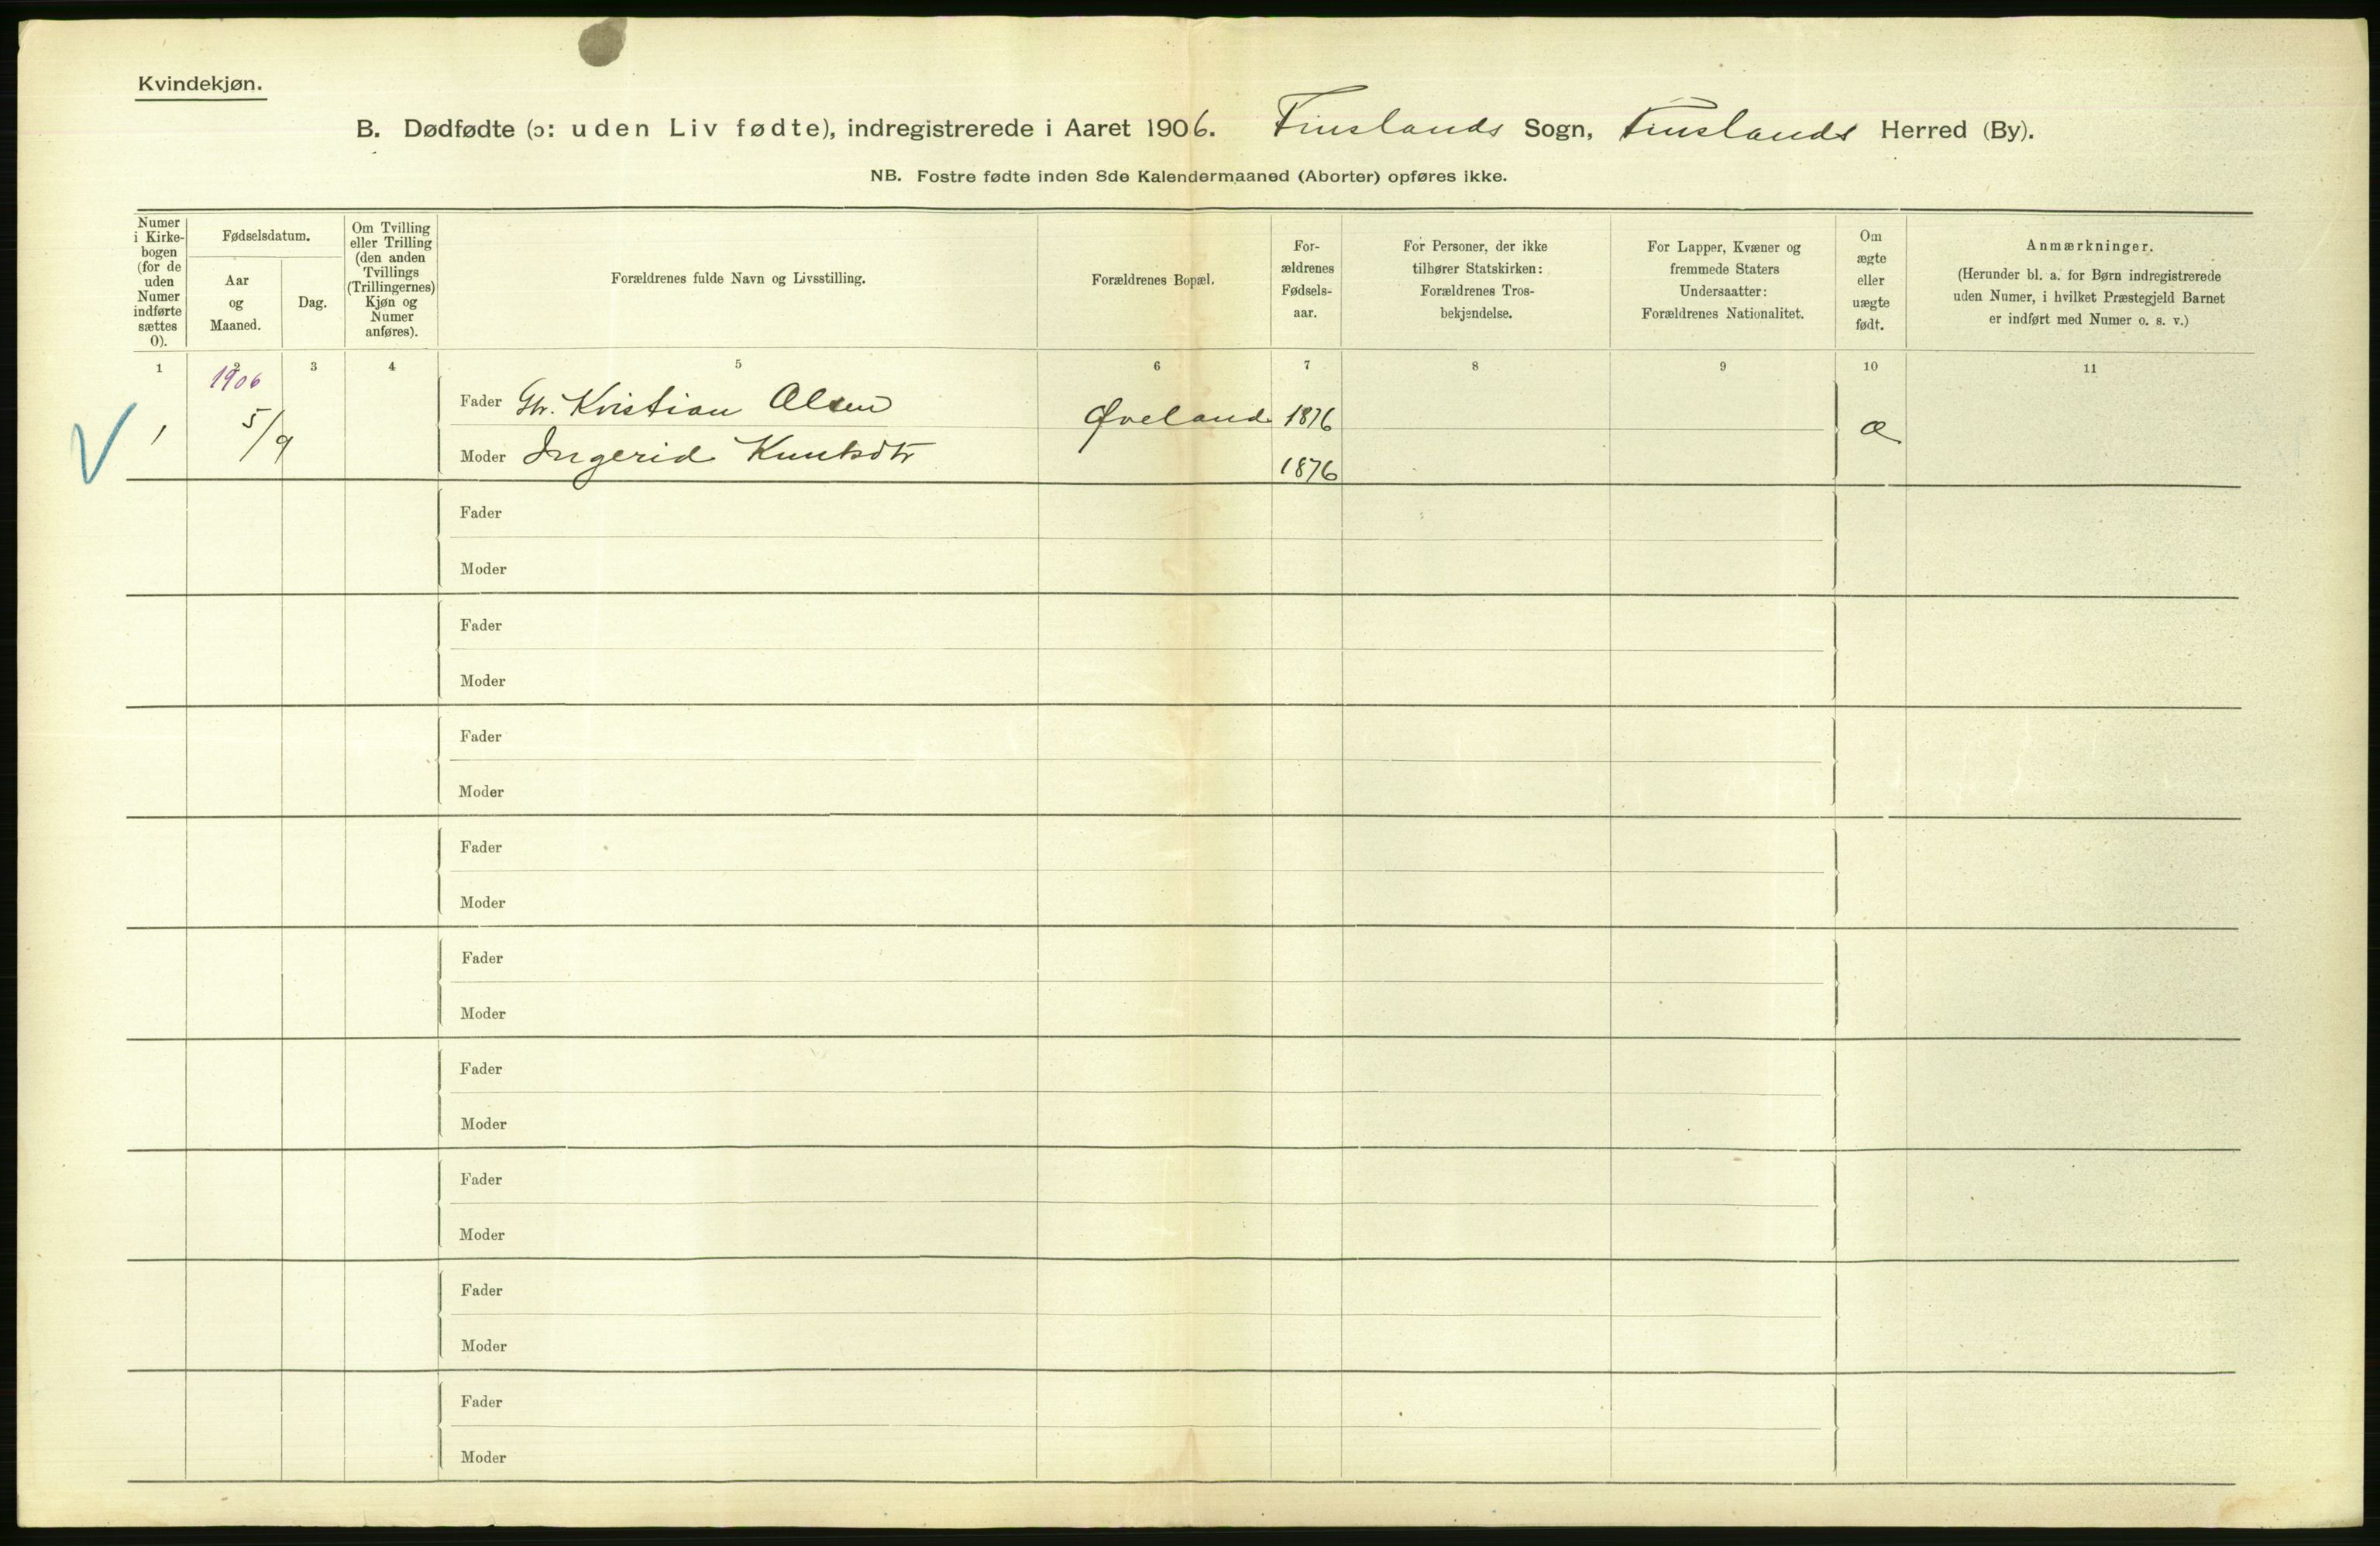 Kvindekjøn.
B. Dødfødte (ɔ: uden Liv fødte), indregistrerede i Aaret 1906. Finslands Sogn, Finslands Herred (By).
NB. Fostre fødte inden 8de Kalendermaaned (Aborter) opføres ikke.
Numer
i Kirke-
bogen
(for de
uden
Numer
indførte
sættes
0).
Fødselsdatum.
Aar
og
Maaned.
Dag.
Om Tvilling
eller Trilling
(den anden
Tvillings
(Trillingernes)
Kjøn og
Numer
anføres).
Forældrenes fulde Navn og Livsstilling.
Forældrenes Bopæl.
For-
ældrenes
Fødsels-
aar.
For Personer, der ikke
tilhører Statskirken:
Forældrenes Tros-
bekjendelse.
For Lapper, Kvæner og
fremmede Staters
Undersaatter:
Forældrenes Nationalitet.
Om
ægte
eller
uægte
født.
Anmærkninger.
(Herunder bl. a. for Børn indregistrerede
uden Numer, i hvilket Præstegjeld Barnet
er indført med Numer o. s. v.)
1 2 3 4 5 6 7 8 9 10 11
1906
Fader Gbr. Kristian Olsen Øveland 1876
1 5/9 æ
Moder Ingerid Knutsdtr 1876
Fader
Moder
Fader
Moder
Fader
Moder
Fader
Moder
Fader
Moder
Fader
Moder
Fader
Moder
Fader
Moder
Fader
Moder